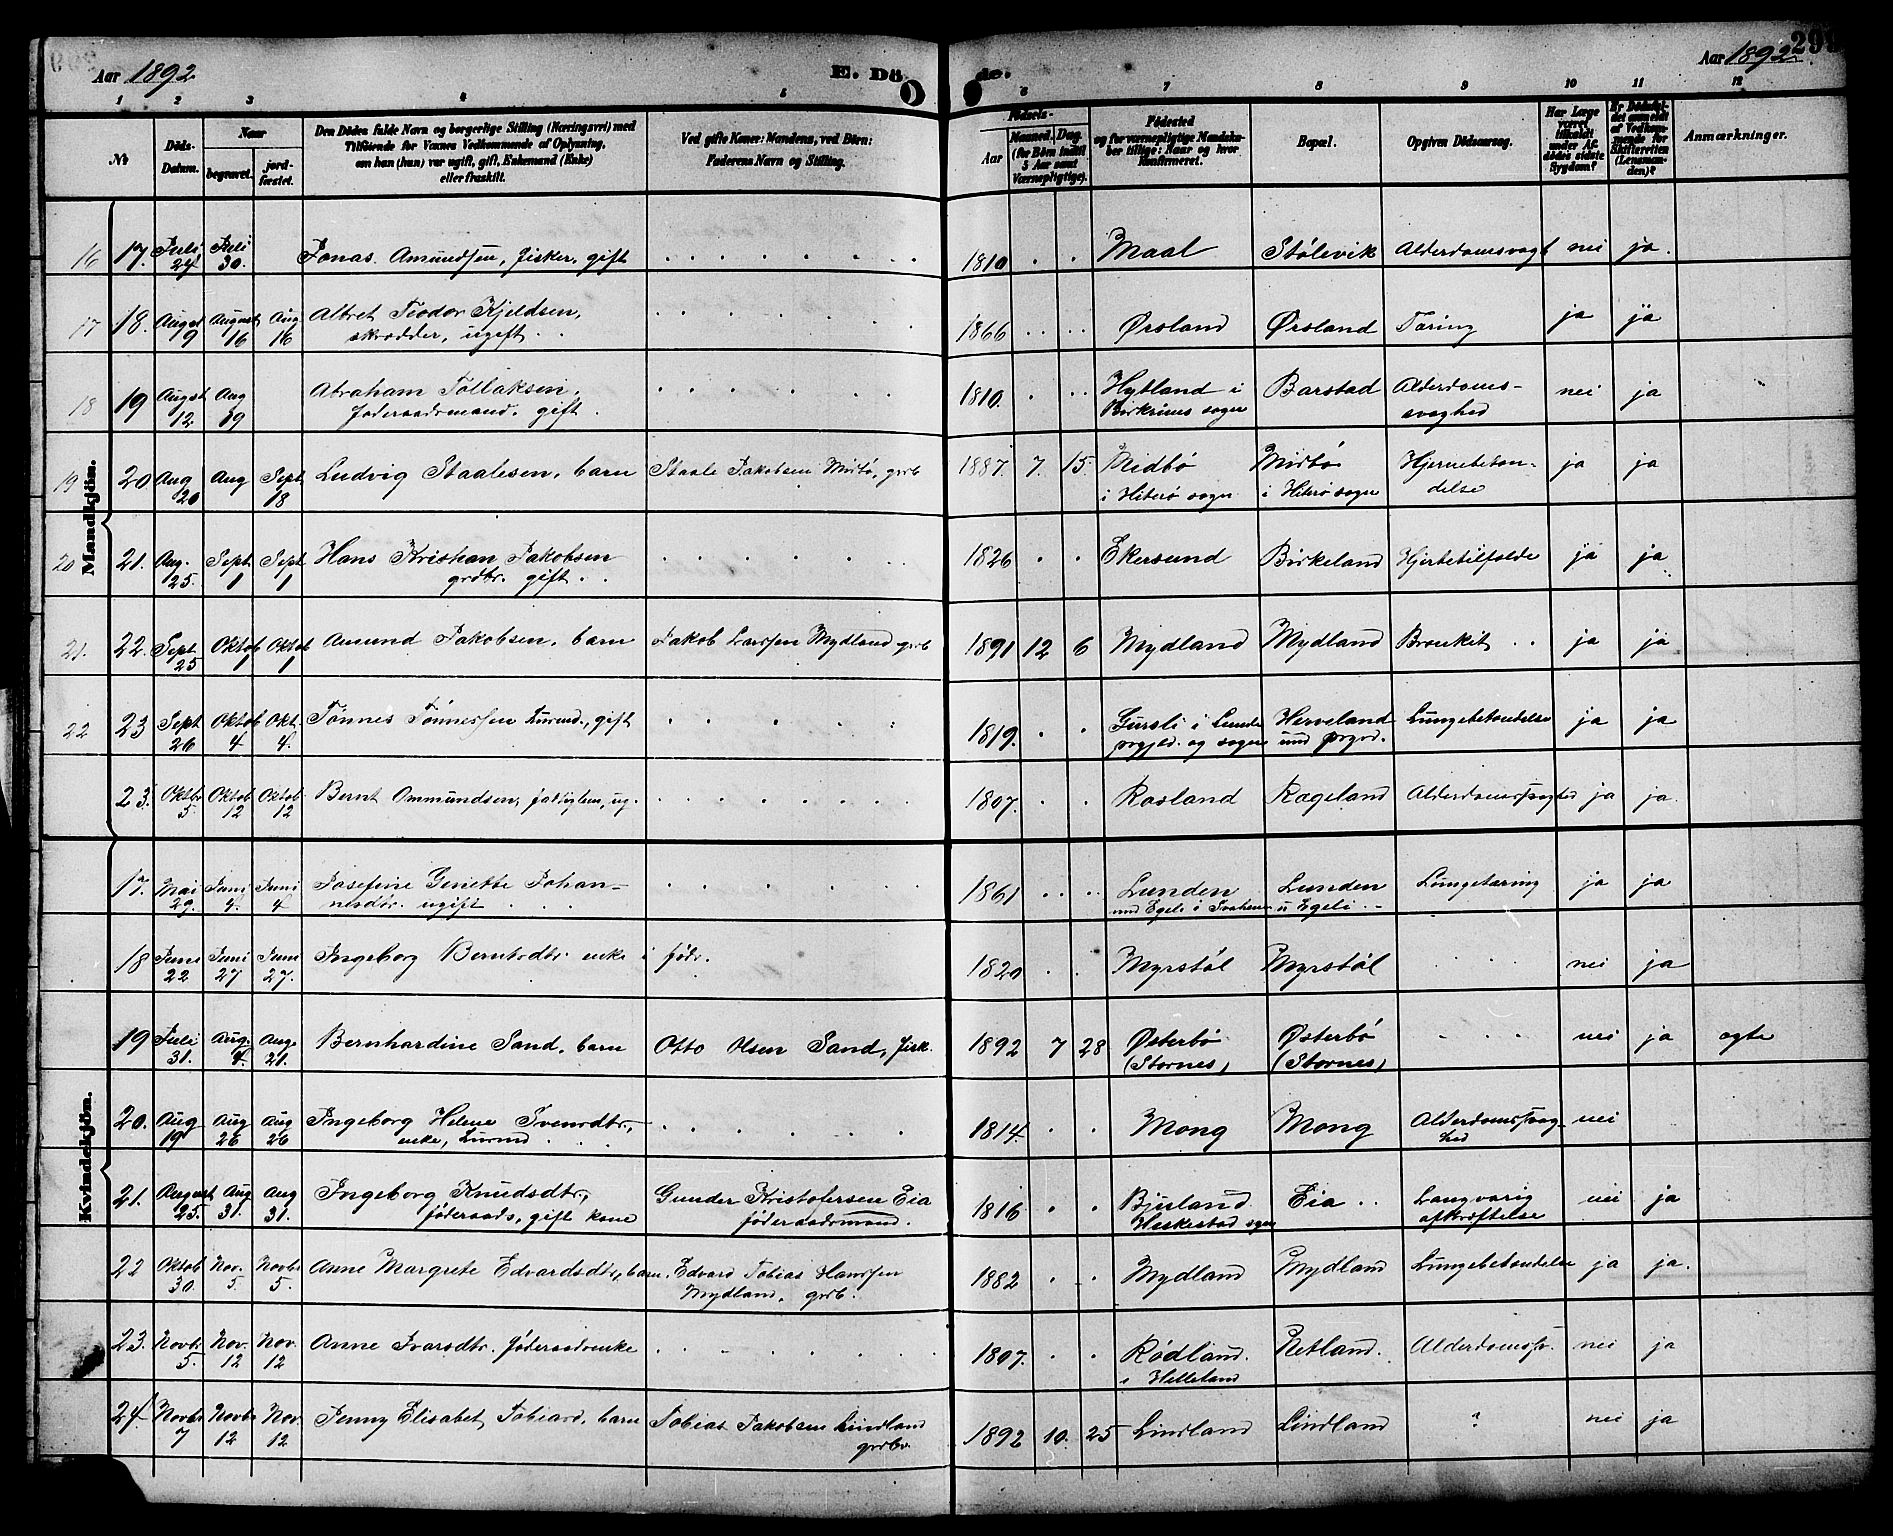 Aar 1892.
E. Dö de.
Aar 1892.
1 2 3 4 5 6 7 8 9 10 11 12
No
Döds-Datum.
Naar
begravet.
jord-fæstet.
Den Dödes fulde Navn og borgerlige Stilling (Næringsvei) med
Tilföiende for Voxnes Vedkommende af Oplysning,
om han (hun) var ugift, gift, Enkemand (Enke)
eller fraskilt.
Ved gifte Koner: Mandens, ved Börn:
Faderens Navn og Stilling.
Födsels-
Aar
Maaned. Dag.
(for Börn indtil
5 Aar samt
Værnepligtige).
Födested
og for værnepligtige Mandskaber tillige: Naar og hvor konfirmeret.
Bopæl.
Opgiven Dödsaarsag.
Har Læge været tilkaldt under Afdødes sidste Sygdom?
Er Dödsfaldet anmeldt af Vedkommende for Skifteretten (Lensmanden)?
Anmærkninger.
Mandkjön.
16 17. Juli 24 Juli 30. Jonas Amundsen, fisker, gift 1810 Maal Stølevik Alderdomssvagh nei ja.
17 18. August 9 August 16 Aug 16 Albret Teodor Kjeldsen, 1866 Ørsland Ørsland Tæring ja ja
skrædder, ugift
18 19 August 12 Aug 19 Abraham Tollaksen, 1810. Hytland i Barstad Alderdoms- nei ja
føderaadsmand, gift Birkrims sogn svaghed
19 20 Aug 20 Aug Sept 18 Ludvig Staalesen, barn Staale Jakobsen Midbø, grdb 1887. 7. 15. Midbø Midbø Hjernebeten- ja ja
i Hiterø sogn i Hiterø sogn delse
20 21. Aug. 25. Sept 1 Sept 1 Hans Kristian Jakobsen 1826 Ekersund Birkeland Hjertetilfælde ja ja
grdbr. gift
21. 22. Sept 25 Oktob 1 Oktob 1 Amund Jakobsen, barn Jakob Larssen Mydland grdb 1891 12 6 Mydland Mydland Bronkit ja ja
22 23 Sept 26 Oktob 4 Okt. 4. Tønnes Tønnessen Inderst., gift 1819. Gursli i Lunde Herveland Lungebetændelse ja ja
prgjld. og sogn und prgrd.
23. Oktbr 5. Oktob 12 Oktob 12 Bernt Ommundsen, fattiglem, ug. 1807. Rosland Rægeland Alderdomssvaghed ja ja.
Kvindekjön.
17. Mai 29. Juni 4. Juni 4 Josefine Geniette Johan- 1861 Lunden Lunden Lungetæring ja ja
nesdtr. ugift und Egeli i u Egeli
18 Juni 22 Juni 27 Juni 27. Ingeborg Berntsdtr. enke i fødr. 1820 Myrstøl Myrstøl nei ja
19 Juli 31. Aug. 4. Aug. 21. Bernhardine Sand, barn Otto Olsen Sand, fisk. 1892 7 28 Østerbø Østerbø nei ja ægte
(Stornes) (Stornes)
20. Aug 19 Aug 26 Aug 26 Ingeborg Helene Svensdtr., 1814 Mong Mong Alderdomssvag- nei
enke, hed
21. August 25. Aug 31. Aug 31. Ingeborg Knudsdtr., Gunder Kristofersen Eia 1816 Bjuland Eia Langvarig nei ja
føderaads, gift kone føderaadsmand. Heskestad sogn afkræftelse
22 Oktob 30. Nov. 5. Novbr 5. Anne Margrete Edvardsdtr., barn. Edvard Tobias Hanssen 1882 Mydland Mydland Lungebetændelse ja ja.
Mydland, grdb.
23. Novbr 5. Nov. 12 Nov. 12 Anne Ivarsdtr. føderaadsenke 1807. Rødland. Netland. Alderdomssv. nei ja
i Helleland
24 Novbr 7 Novbr 12 Nov. 12 Jenny Elisabet Tobiasd, barn Tobias Jakobsen Lindland 1892 10. 25 Lindland Lindland ? nei ja
grdbr.